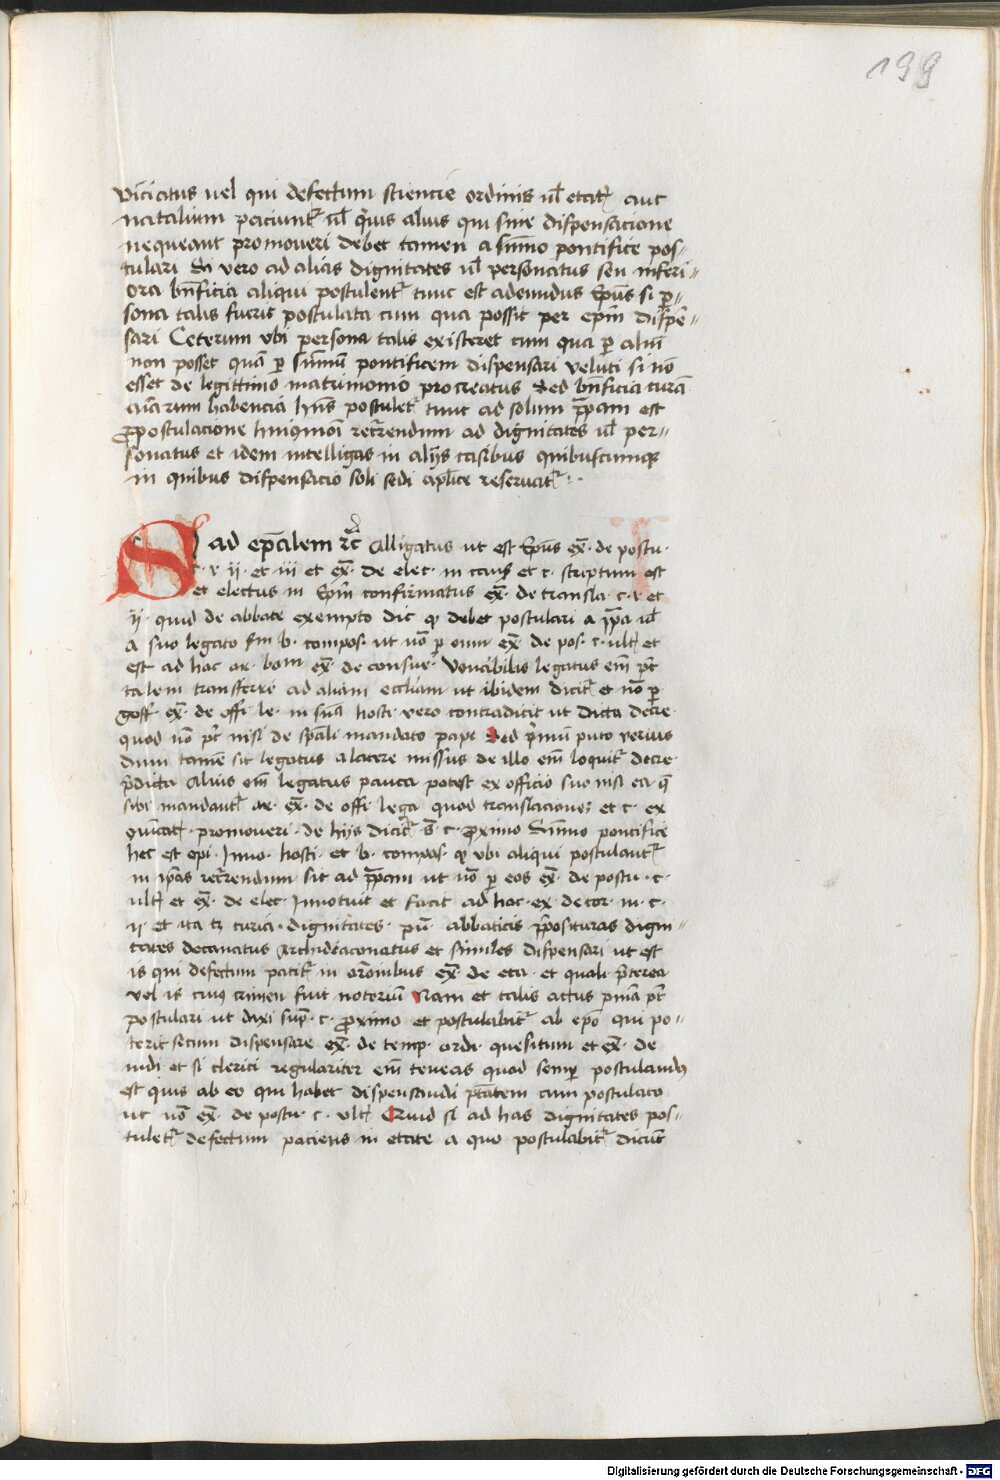 199
viciatus uel qui defectum sciencie ordinis ul̄ etat̄ aut
natalium paciunt᷑ ul̄ quis alius qui sine dispensacione
nequeant promoueri debet tamen a sūmo pontifice pos-
tulari Si vero ad alias dignitates ul̄ personatus seu inferi-
ora bn̄ficia aliqui postulent᷑ tunc est adeundus Ep̄us si p̲-
sona talis fuerit postulata cum qua possit per ep̄m dispē-
sari Ceterum vbi persona talis existeret cum qua p̲ aliū
non posset quā p̲ sūmū pontificem dispensari veluti si nō
esset de legittimo matrimonio procreatus Sed bn̄ficia curā
aīarum habencia hīns postulet᷑ tunc ad solum pp̄am est
p̱ postulacione huiusmōi recr̄rendum ad dignitates ul̄ per-
sonatus et idem intelligas in alijs casibus quibuscumqꝫ
in quibus dispensacio soli sedi apl̄ice reseruat᷑
S ad ep̄alem rc̄ Alligatus ut est Ep̄us ex̄. de postu.
c. i. ii. et iii et ex̄. de elec. in caus̄ et c. scriptum est
et electus in Ep̄m confirmatus ex̄. de transla. c. i. et
ij. quid de abbate exempto dic qꝫ debet postulari a pp̄a ul̄
a suo legato sm̄ b. compos. ut nō p̲ eum ex̄. de pos. c. ult̄ et
est ad hac ar. bom ex̄. de consue᷑. Venerabilis legatus em̄ pt̄
talem transferre ad aliam eccl̄iam ut ibidem dicit᷑ et nō p̲
goff᷑. ex̄. de offi. le. in sūa hosti. vero contradicit ut dicta decre.
quod nō pt̄ nisi de sp̄ali mandato pape Sed p̄mū puto verius
dum tamē sit legatus a latere missus de illo em̄ loquit᷑ decre.
p̄dicta Alius em̄ legatus pauca potest ex officio suo nisi ea q̄
sibi mandant᷑ ar. ex̄. de offi. lega. quod translacionē et c. ex
promoueri. de hijs dicit᷑ s̄. c. p̱ximo Sūmo pontifici
hec est epi. Inno. hosti. et b. compos. qꝫ vbi aliqui postulant᷑
in ip̄as recr̄rendum sit ad pp̄am ut nō p̲ eos ex̄. de postu. c.
ult̄ et ex̄. de elec. Innotuit et facit ad hac. ex. de cor. in. c.
ij et ita dignitates. abbaticis p̄posituras digni-
tates decanatus archidiaconatus et similes dispensari ut est
is qui defectum patit᷑ in or̄onibus ex̄. de eta. et quali. p̄terea
vel is cuius crimen fuit notoriū Nam et talis pt̄
postulari ut dixi sup̄. c. p̱ximo et postulabit᷑ ab ep̄o qui po-
terit secum dispensare ex̄. de temp. ordi. quesitum et ex̄. de
iudi. et si clerici regulariter em̄ teneas quod semp̲ postulandus
est quis ab eo qui habet dispensandi ptātem cum postulato
ut nō ex̄. de postu. c. ult̄ Quid si ad has dignitates pos-
tulet᷑ defectum paciens in etate a quo postulabit᷑ dicūt
Digitalisierung gefördert durch die Deutsche Forschungsgemeinschaft - DFG